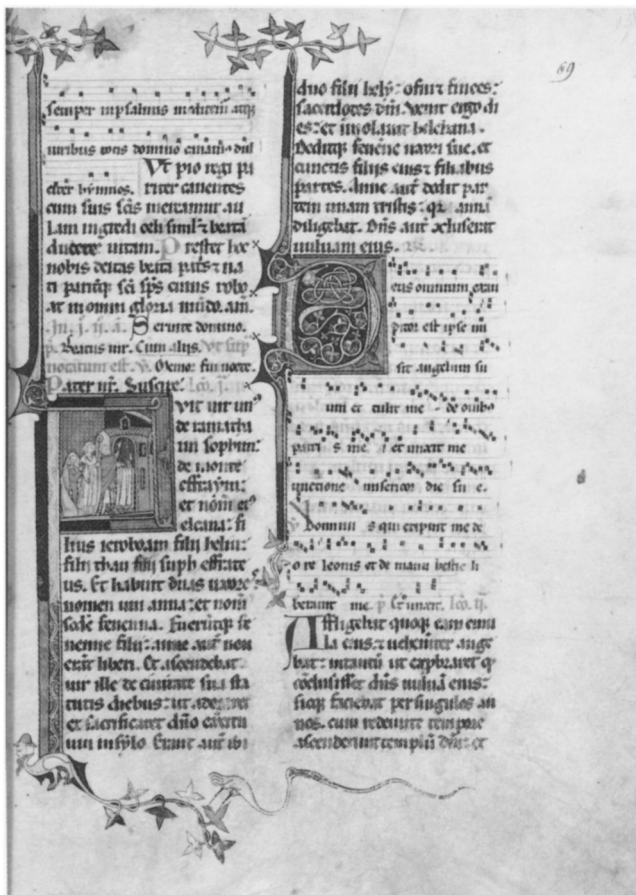 semper in psalmis meditem atq3
viribus totis domino canamus dul
Ut pio regi pa
citer hymnos. riter canentes
cum suis scis mereamur au
lam ingredi celi simul 7 beatã
ducere vitam. Prestet hoc
nobis deitas beata patris 7 na
ti pariterq3 sci sps cuius rebo
at in omni gloria mũdo. am.
Jn. j. ij. a. Servite domino.
ps. Beatus vir. Cum aliis. Ut sup
notatum est. v. Memor fui nocte.
Pater nr. Suscipe. lco. j.
vit vir un9
de ramatha
im sophim:
de monte
effraym:
et nom ei9
elcana: fi
lius ieroboam filij heliu:
filij thau filij suph effrate
us. Et habuit duas uxores
nomen uni anna: et nom
scde fenenna. Fueruntq3 fe
nenne filij: anne aut non
erãt liberi. Et ascendebat
vir ille de civitate sua sta
tutis diebus: ut adoraret
et sacrificaret dño exercitu
um in sylo. Erant aut ibi
duo filij hely: ofni 7 finees:
sacerdotes dni. Venit ergo di
es: et immolavit helchana.
Deditq3 fenene uxori sue. et
cunctis filiis eius 7 filiabus
partes. Anne aut dedit par
tem unam tristis: q2 annã
diligebat. Dñs aut cõcluserat
vulvam eius.
Deus omnium exau
ditor est ipse mi
sit angelum su
um et tulit me de ovibus
patris mei et unxit me
unctione misericordie sue.
v. Dominus qui eripuit me de
ore leonis et de manu bestie li
beravit me. p. Et unxit. lco. ij.
Affligebat quoq3 eam emu
la eius: 7 vehementer ange
bat: intantũ ut exprobraret q
cõclusisset dñs vulvã eius:
sicq3 faciebat per singulos an
nos. cum redeunte tempore
ascenderunt templũ dñi: et
69